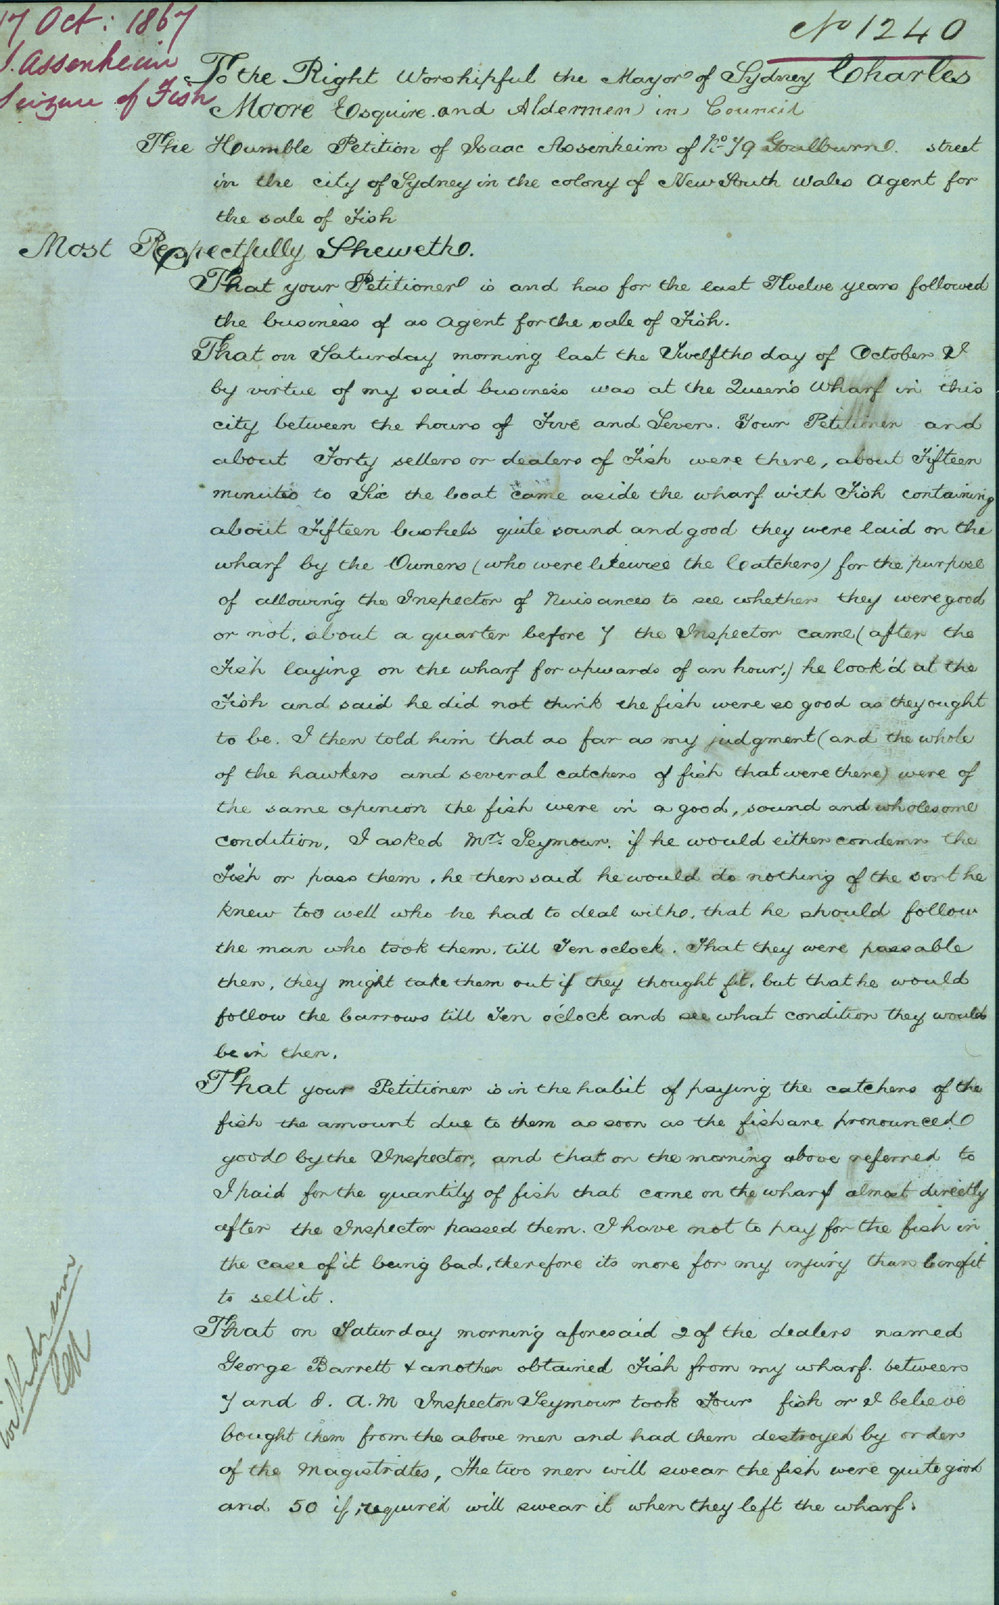 17 Oct: 1867
I. Assenheim
Seizure of Fish
No 1240
To the Right Worshipful the Mayor of Sydney Charles
Moore Esquire and Aldermen in Council
The Humble Petition of Isaac Assenheim of No 79 Goulburn street
in the city of Sydney in the colony of New South Wales Agent for
the sale of Fish
Most Respectfully Sheweth.
That your Petitioner is and has for the last Twelve years followed
the business of as Agent for the sale of Fish.
That on Saturday morning last the Twelfth day of October I
by virtue of my said business was at the Queen's Wharf in this
city between the hours of Five and Seven. Your Petitioner and
about Forty sellers or dealers of Fish were there, about Fifteen
minutes to Six the boat came aside the wharf with Fish containing
about Fifteen bushels quite sound and good they were laid on the
wharf by the Owners (who were likewise the Catchers) for the purpose
of allowing the Inspector of Nuisances to see whether they were good
or not, about a quarter before 7 the Inspector came (after the
Fish laying on the wharf for upwards of an hour.) he look'd at the
Fish and said he did not think the fish were so good as they ought
to be. I then told him that as far as my judgment (and the whole
of the hawkers and several catchers of fish that were there) were of
the same opinion the fish were in a good, sound and wholesome
condition, I asked Mr. Seymour. if he would either condemn the
Fish or pass them, he then said he would do nothing of the sort he
knew too well who he had to deal with, that he should follow
the man who took them, till Ten oclock. That they were passable
then, they might take them out if they thought fit, but that he would
follow the barrows till Ten o'clock and see what condition they would
be in then.
That your Petitioner is in the habit of paying the catchers of the
fish the amount due to them as soon as the fish are pronounced
good by the Inspector, and that on the morning above referred to
I paid for the quantity of fish that come on the wharf almost directly
after the Inspector passed them. I have not to pay for the fish in
the case of it being bad, therefore its more for my injury than benefit
to sell it.
That on Saturday morning aforesaid 2 of the dealers named
George Barrett & another obtained Fish from my wharf. between
7 and 8. A.M Inspector Seymour took Four fish or I believe
bought them from the above men and had them destroyed by order
of the Magistrates, The two men will swear the fish were quite good
and 50 if, required will swear it when they left the wharf.
Withdrawn